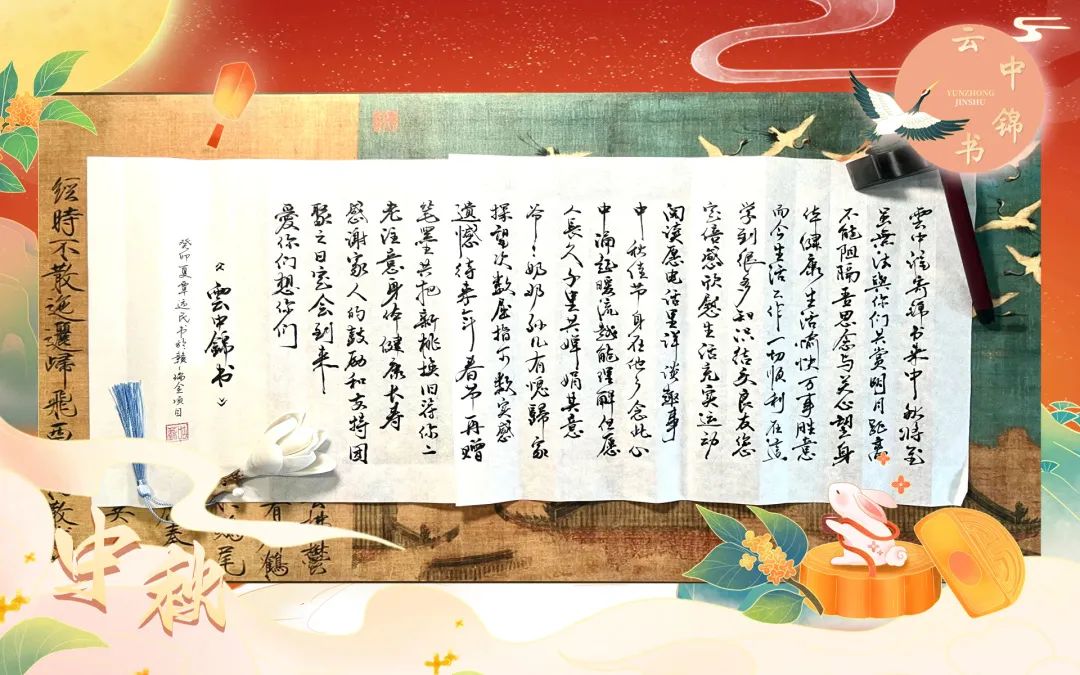 云中锦书
YUNZHONG
JINSHU
雲中谁寄锦书来中秋将至
虽无法與你们共赏明月距离
不能阻隔吾思念与关心望身
体健康生活愉快万事胜意
而今生活工作一切顺利在这
学到很多知识结交良友您
定倍感欣慰生活充实运动
阅读愿电话里详谈趣事
中秋佳节身在他乡念此心
中涌起暖流越能理解但愿
人長久千里共婵娟其意
爷々奶奶孙儿有愧歸家
探望次数屈指可数实感
遗憾待来年春节再赠
笔墨共把新桃换旧符你二
老注意身体健康长寿
感谢家人的鼓励和支持團
聚之日定会到来
爱你们想你们
《雲中錦书》
癸卯夏覃远民书於赣瑞金项目
經時不散迤邐歸飛
中秋